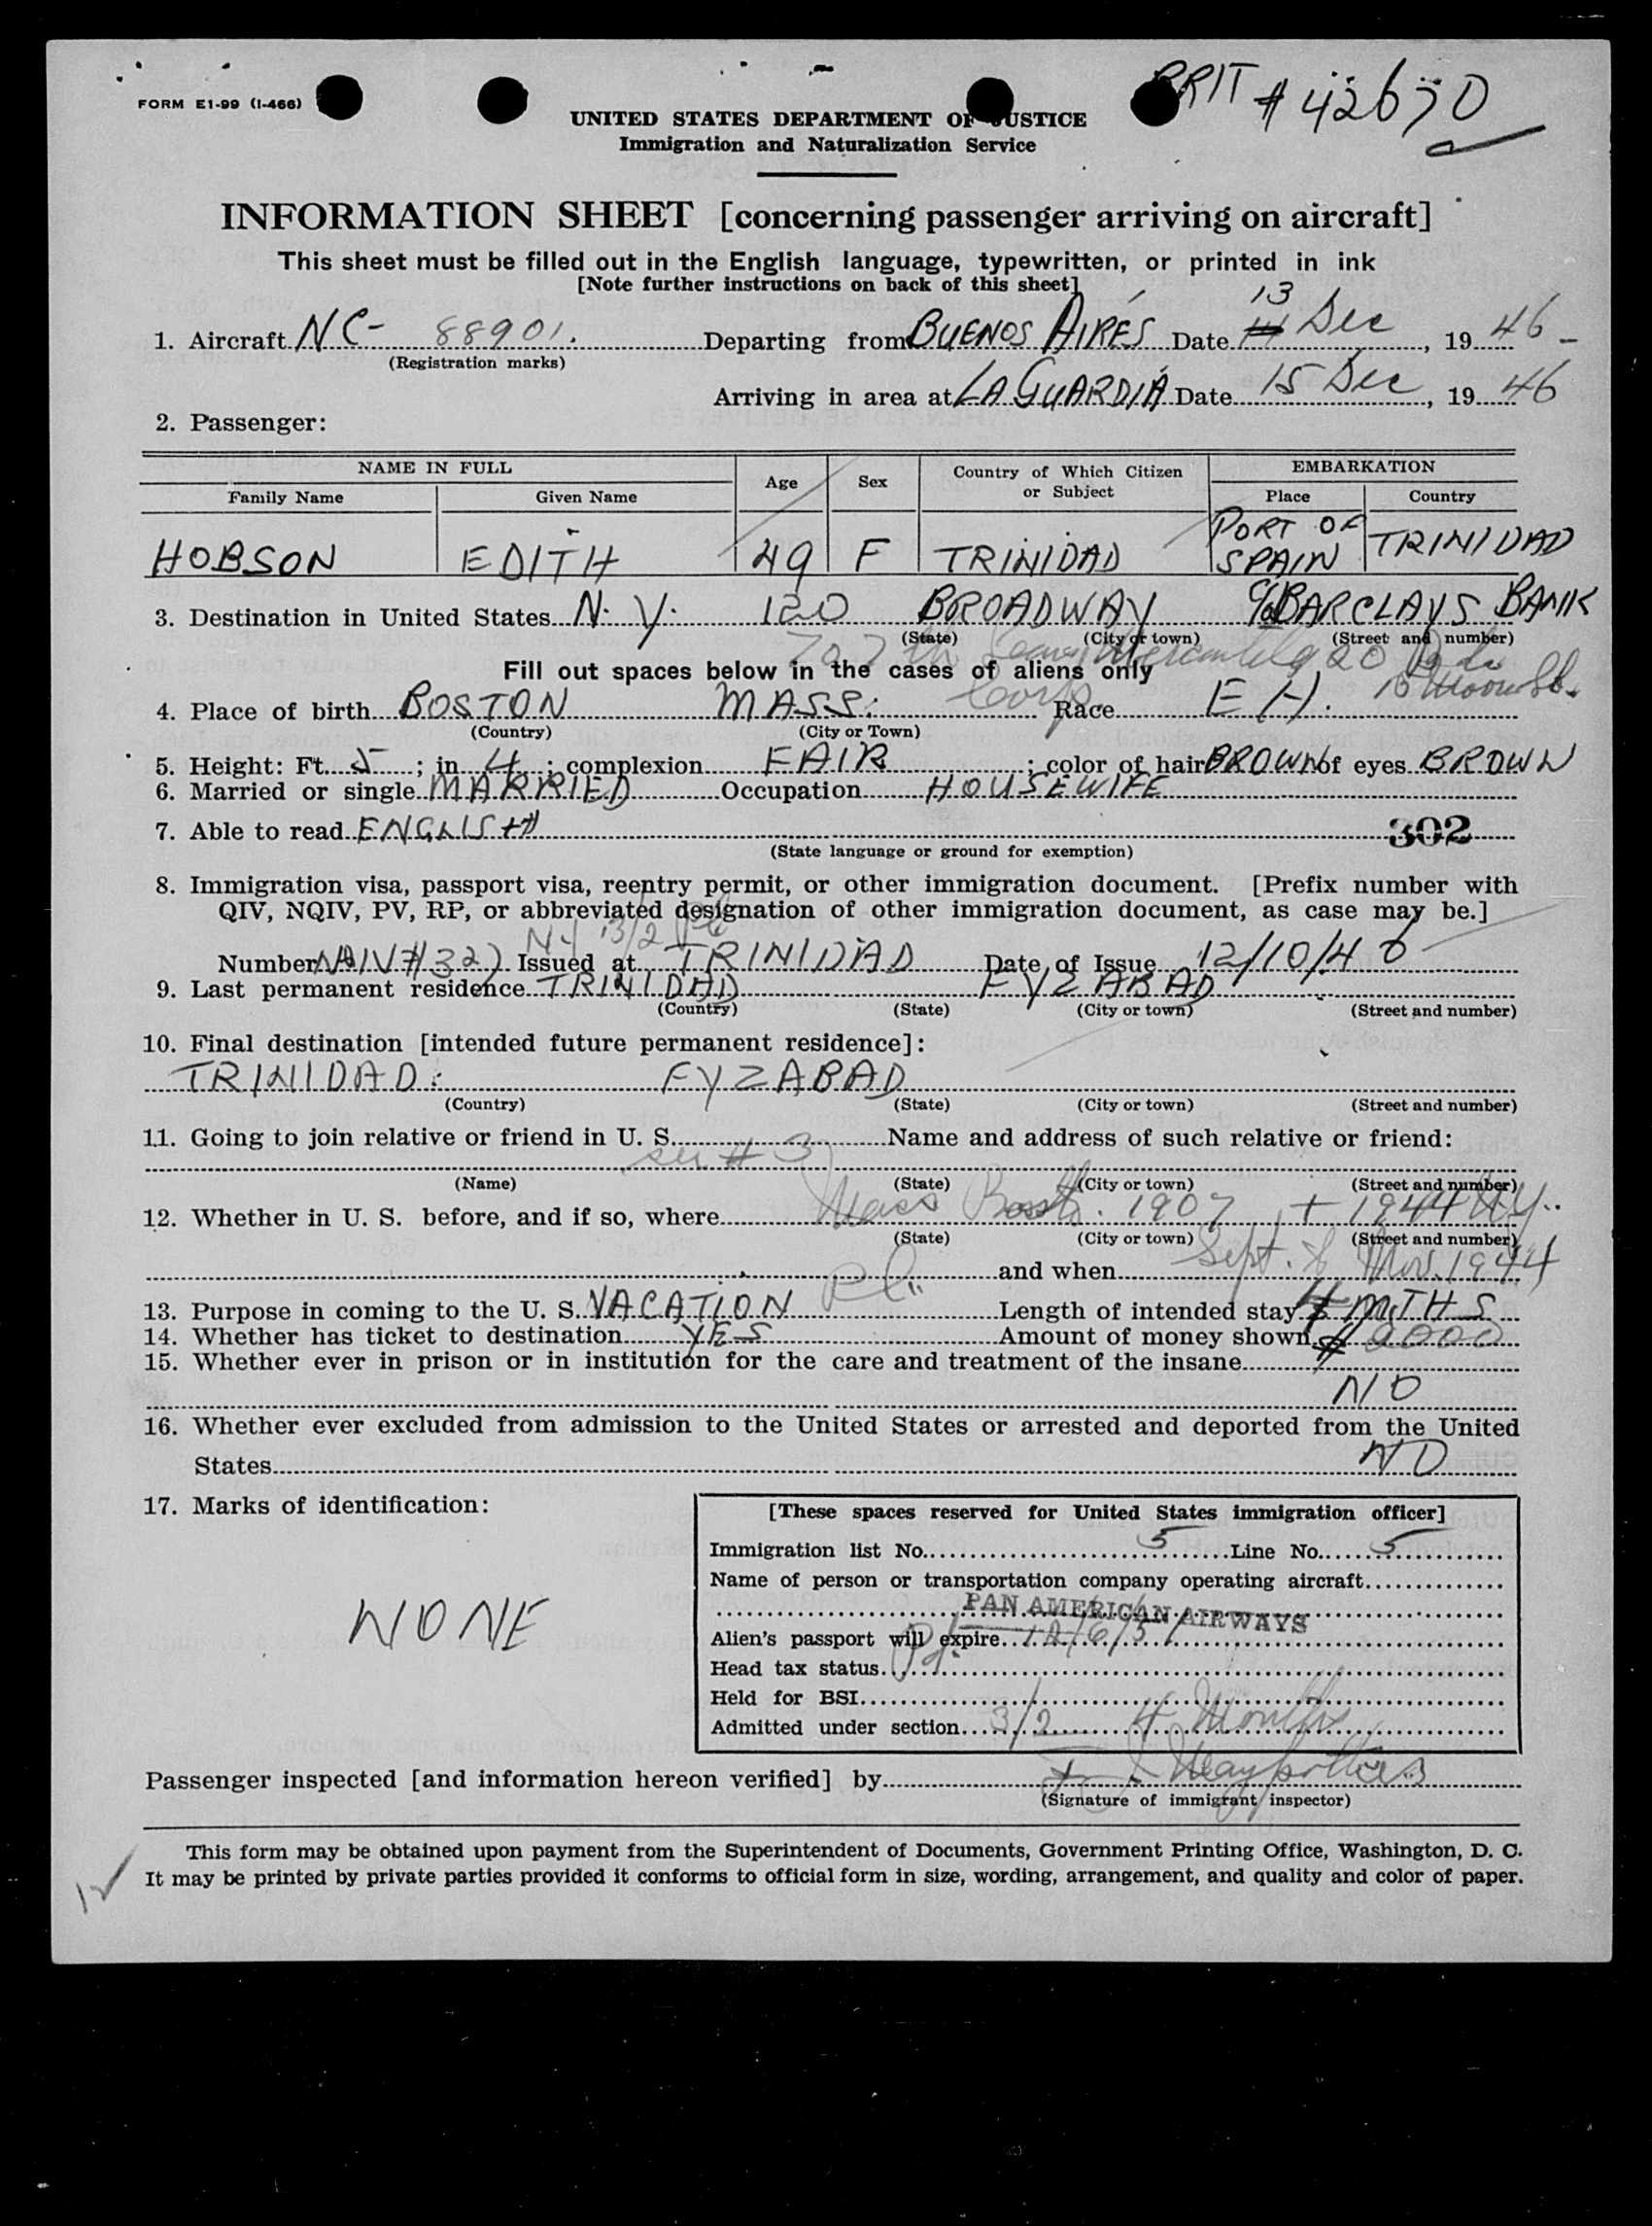 BRIT # 42670
FORM E1-99 (I-466)
UNITED STATES DEPARTMENT OF JUSTICE
Immigration and Naturalization Service
INFORMATION SHEET [concerning passenger arriving on aircraft]
This sheet must be filled out in the English language, typewritten, or printed in ink
[Note further instructions on back of this sheet]
13
1. Aircraft NC- 88901. Departing from BUENOS AIRES Date 14 Dec, 1946
(Registration marks)
Arriving in area at LA GUARDIA Date 15 Dec, 1946
2. Passenger:
NAME IN FULL Age Sex Country of Which Citizen or Subject EMBARKATION
Family Name Given Name Place Country
HOBSON EDITH 49 F TRINIDAD PORT OF SPAIN TRINIDAD
3. Destination in United States N. Y. 120 BROADWAY c/o BARCLAYS BANK
(State) (City or town) (Street and number)
Fill out spaces below in the cases of aliens only
4. Place of birth BOSTON MASS. Race EH.
(Country) (City or Town)
5. Height: Ft. 5; in. 4; complexion FAIR; color of hair BROWN of eyes BROWN
6. Married or single MARRIED Occupation HOUSEWIFE
7. Able to read ENGLISH 302
(State language or ground for exemption)
8. Immigration visa, passport visa, reentry permit, or other immigration document. [Prefix number with
QIV, NQIV, PV, RP, or abbreviated designation of other immigration document, as case may be.]
Number Issued at TRINIDAD Date of Issue 12/10/46
9. Last permanent residence TRINIDAD FYZABAD
(Country) (State) (City or town) (Street and number)
10. Final destination [intended future permanent residence]:
TRINIDAD. FYZABAD
(Country) (State) (City or town) (Street and number)
11. Going to join relative or friend in U. S. Name and address of such relative or friend:
see # 3
(Name) (State) (City or town) (Street and number)
12. Whether in U. S. before, and if so, where Mass Boston. 1907 + 1944 NY.
(State) (City or town) (Street and number)
and when Sept. & Nov. 1944
13. Purpose in coming to the U. S. VACATION Length of intended stay 4 MTHS
14. Whether has ticket to destination YES Amount of money shown $ 2000
15. Whether ever in prison or in institution for the care and treatment of the insane
NO
16. Whether ever excluded from admission to the United States or arrested and deported from the United
States NO
17. Marks of identification:
NONE
[These spaces reserved for United States immigration officer]
Immigration list No. 5 Line No. 5
Name of person or transportation company operating aircraft
PAN AMERICAN AIRWAYS
Alien's passport will expire 12/6/51
Head tax status
Held for BSI
Admitted under section 3/2 4 Months
Passenger inspected [and information hereon verified] by
(Signature of immigrant inspector)
This form may be obtained upon payment from the Superintendent of Documents, Government Printing Office, Washington, D. C.
It may be printed by private parties provided it conforms to official form in size, wording, arrangement, and quality and color of paper.